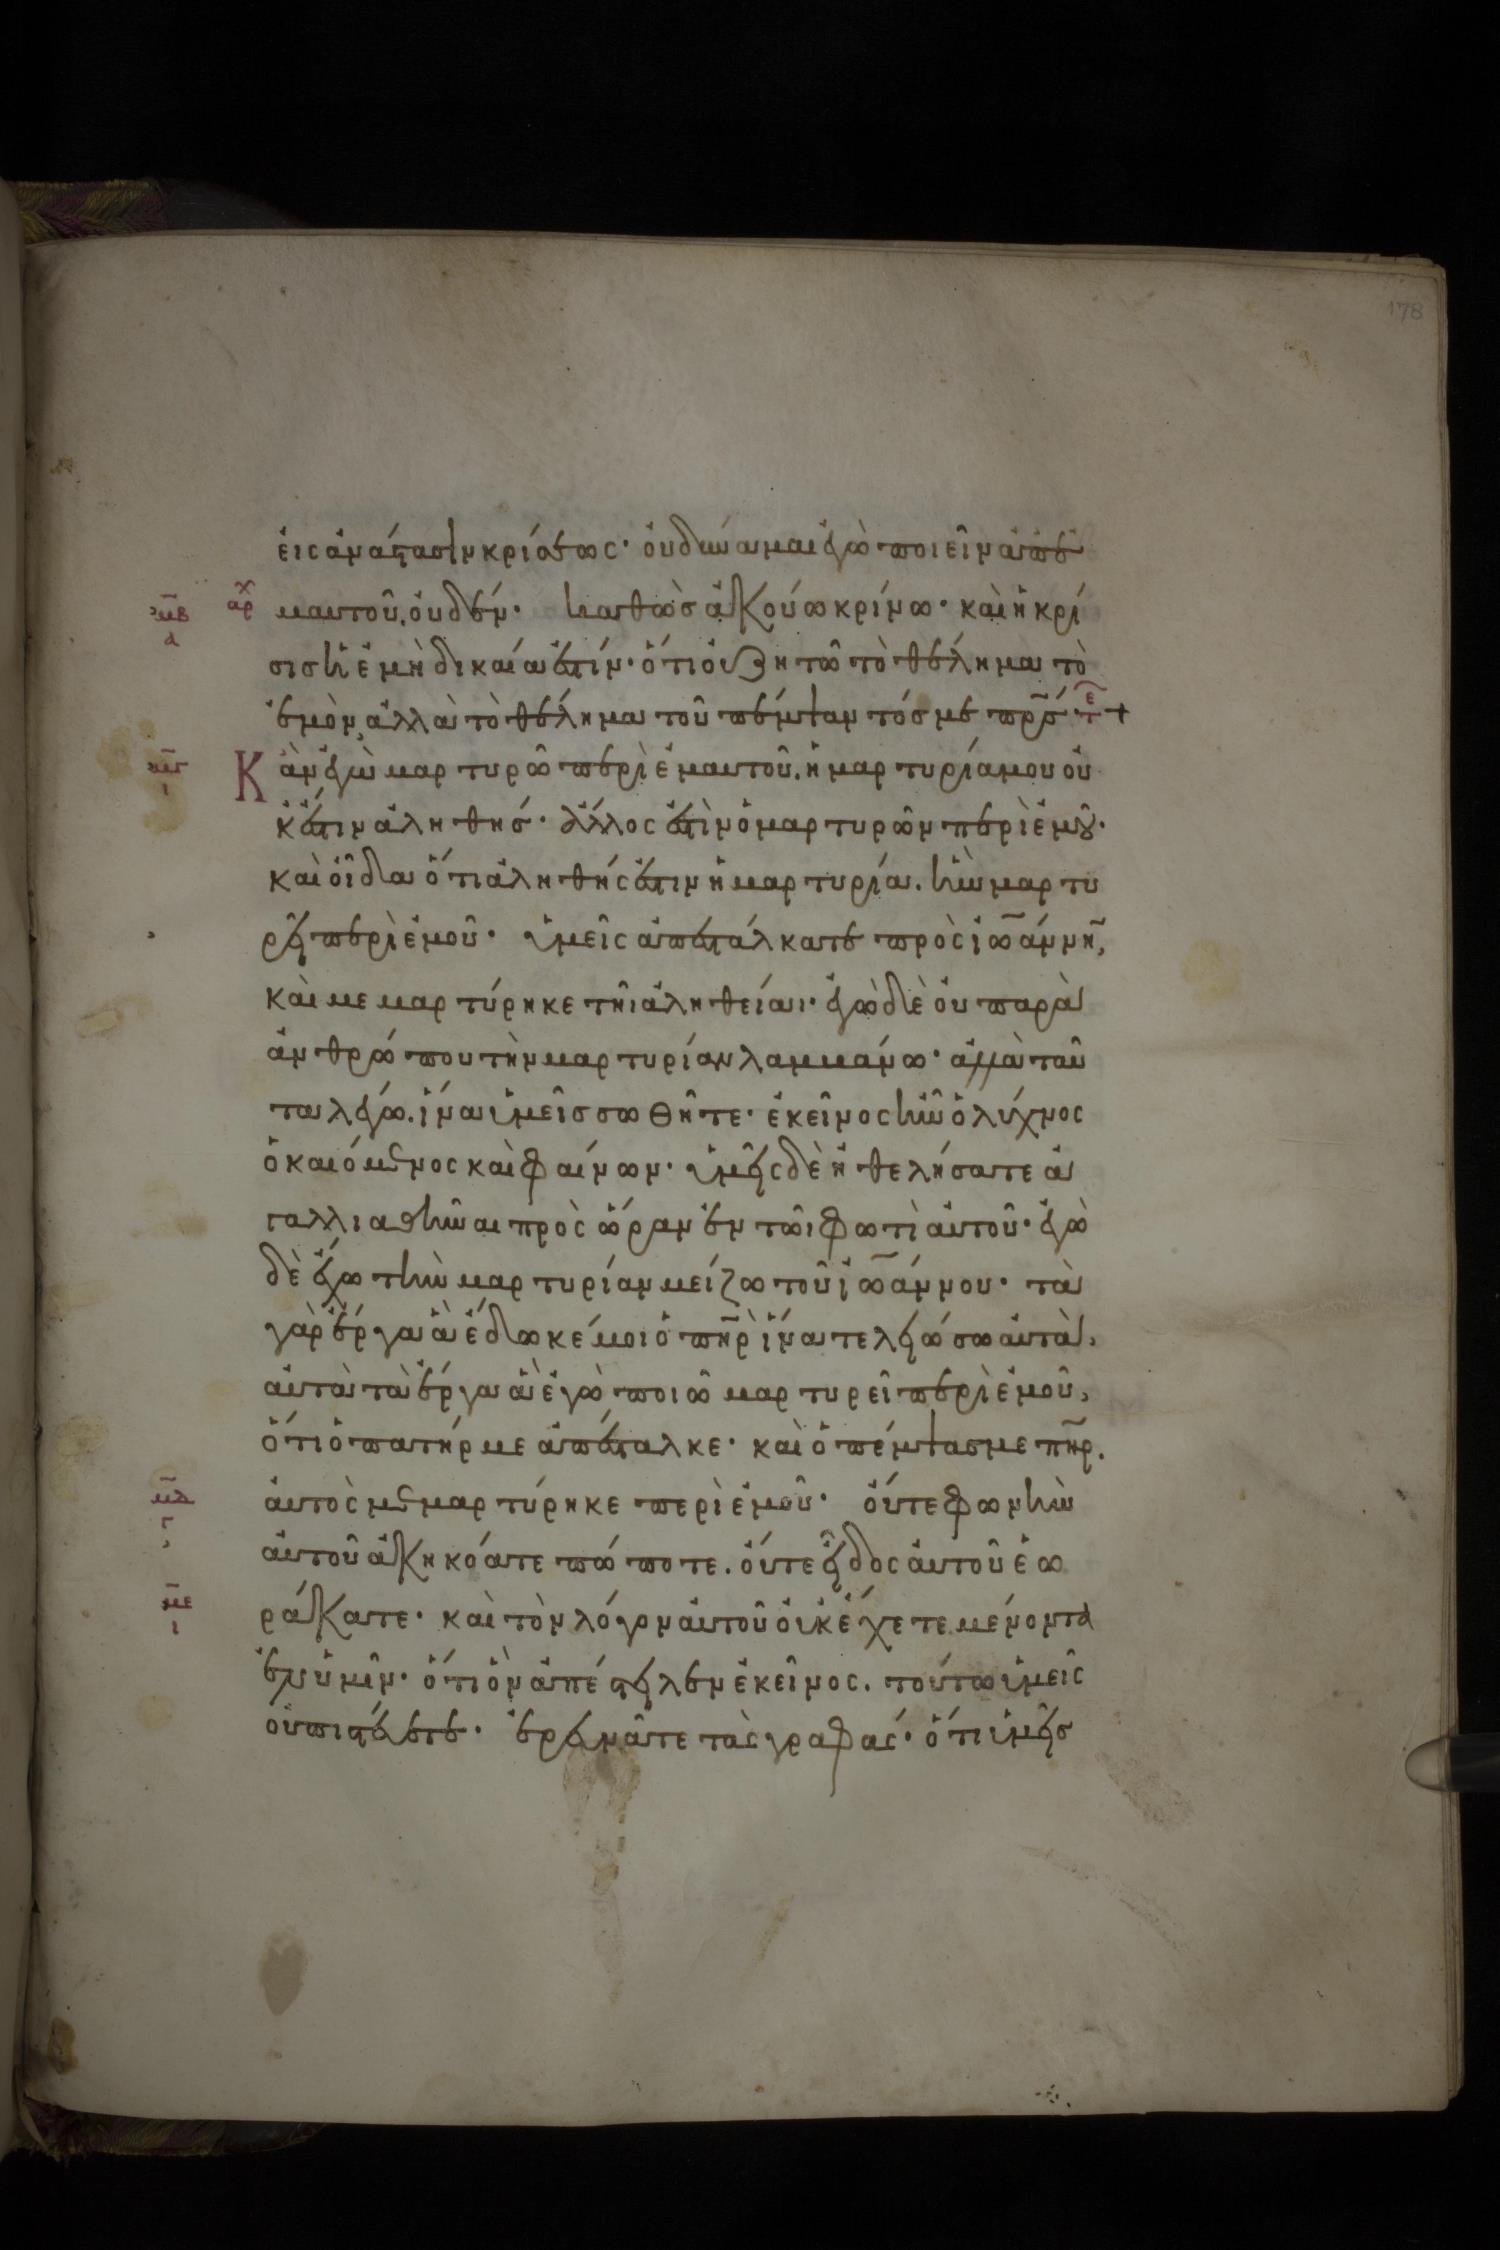 178
εἰς ἀνάστασιν κρίσεως· οὐ δύναμαι ἐγὼ ποιεῖν ἀπ' ἐ
μαυτοῦ, οὐδέν· καθὼς ἀκούω κρίνω· καὶ ἡ κρί
σις ἡ ἐμὴ δικαία ἐστίν· ὅτι οὐ ζητῶ τὸ θέλημα τὸ
ἐμὸν, ἀλλὰ τὸ θέλημα τοῦ πέμψαντός με πρς +
Κἀν ἐγὼ μαρτυρῶ περὶ ἐμαυτοῦ. ἡ μαρτυρία μου οὐ
κ ἔστιν ἀληθής· ἄλλος ἐστὶν ὁ μαρτυρῶν περὶ ἐμοῦ·
καὶ οἶδα ὅτι ἀληθής ἐστιν ἡ μαρτυρία. ἣν μαρτυ
ρεῖ περὶ ἐμοῦ· ὑμεῖς ἀπεστάλκατε πρὸς ἰωάννην,
καὶ μεμαρτύρηκε τῆι ἀληθείαι· ἐγὼ δὲ οὐ παρὰ
ἀνθρώπου τὴν μαρτυρίαν λαμβάνω· ἀλλὰ ταῦ
τα λέγω. ἵνα ὑμεῖς σωθῆτε· ἐκεῖνος ἦν ὁ λύχνος
ὁ καιόμενος καὶ φαίνων· ὑμεῖς δὲ ἠθελήσατε ἀ
γαλλιασθῆναι πρὸς ὥραν ἐν τῶι φωτὶ αὐτοῦ· ἐγὼ
δὲ ἔχω τὴν μαρτυρίαν μείζω τοῦ ἰωάννου· τὰ
γὰρ ἔργα ἃ ἔδωκέ μοι ὁ πηρ ἵνα τελειώσω αὐτὰ,
αὐτὰ τὰ ἔργα ἃ ἐγὼ ποιῶ μαρτυρεῖ περὶ ἐμοῦ,
ὅτι ὁ πατήρ με ἀπέσταλκε· καὶ ὁ πέμψας με πηρ.
αὐτὸς μεμαρτύρηκε περὶ ἐμοῦ· οὔτε φωνὴν
αὐτοῦ ἀκηκόατε πώποτε. οὔτε εἶδος αὐτοῦ ἑω
ράκατε· καὶ τὸν λόγον αὐτοῦ οὐκ ἔχετε μένοντα
ἐν ὑμῖν· ὅτι ὃν ἀπέστειλεν ἐκεῖνος. τούτω ὑμεῖς
οὐ πιστεύετε· ἐρευνᾶτε τὰς γραφάς· ὅτι ὑμεῖς